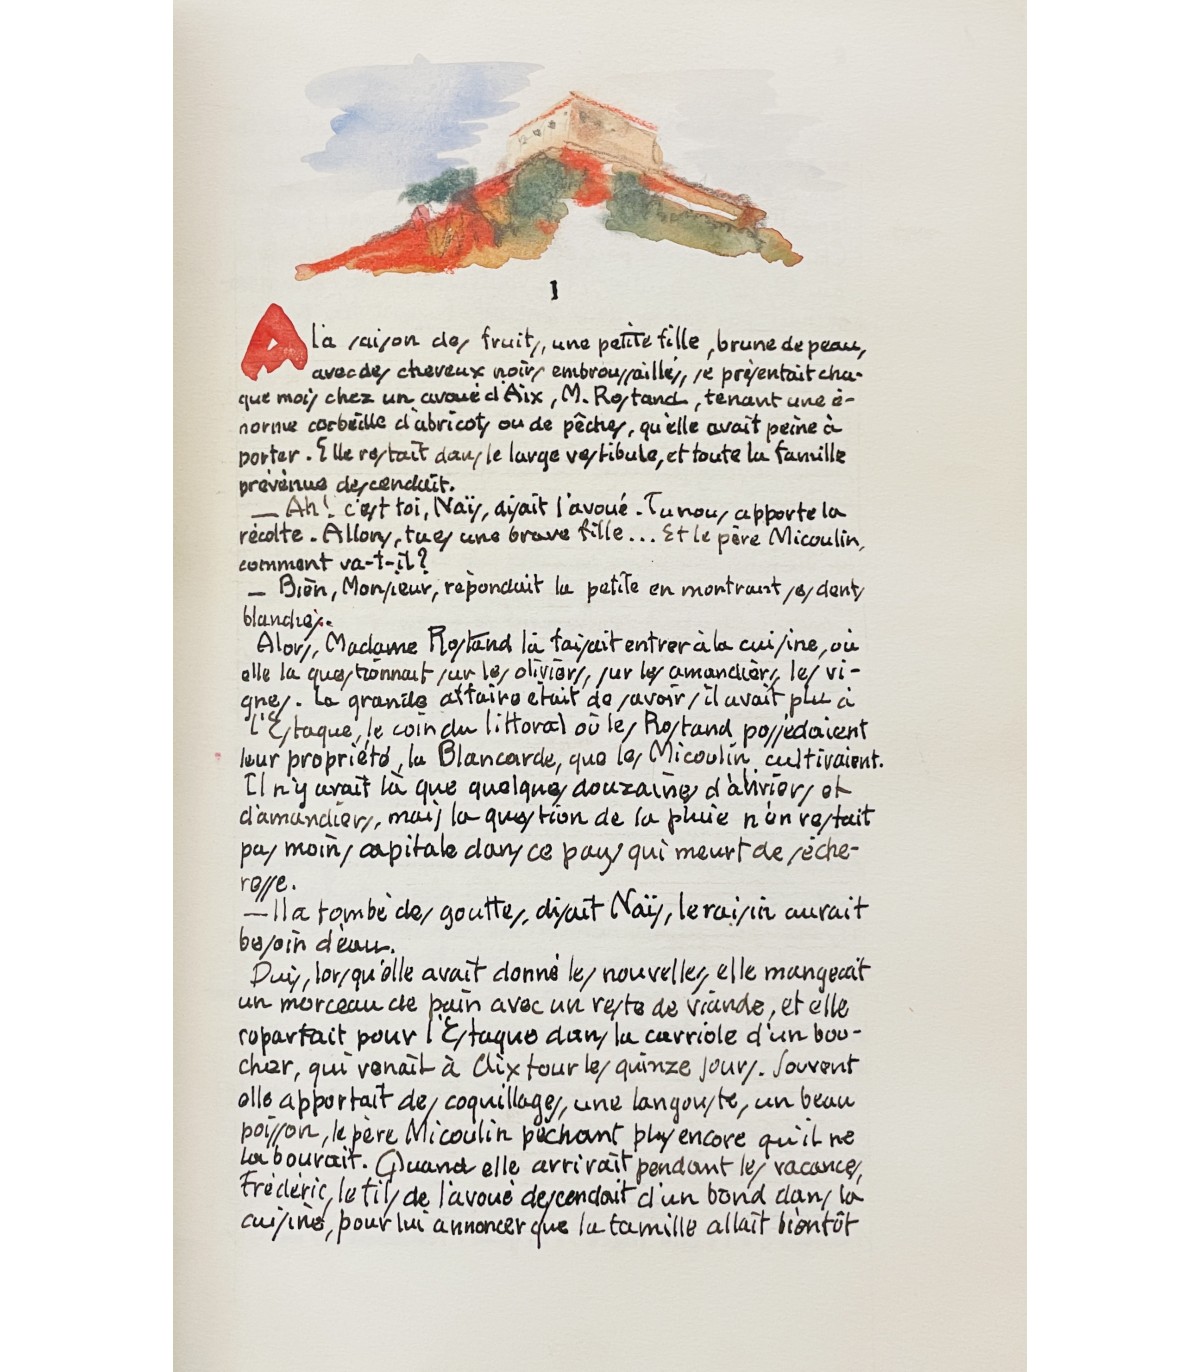 I
A la saison des fruits, une petite fille, brune de peau,
avec des cheveux noirs embroussaillés, se présentait cha-
que mois chez un avoué d'Aix, M. Rostand, tenant une é-
norme corbeille d'abricots ou de pêches, qu'elle avait peine à
porter. Elle restait dans le large vestibule, et toute la famille
prévenue descendait.
— Ah! c'est toi, Naïs, disait l'avoué. Tu nous apporte la
récolte. Allons, tu es une brave fille... Et le père Micoulin,
comment va-t-il?
— Bien, Monsieur, répondait la petite en montrant ses dents
blanches.
Alors, Madame Rostand la faisait entrer à la cuisine, où
elle la questionnait sur les oliviers, sur les amandiers, les vi-
gnes. La grande affaire était de savoir s'il avait plu à
l'Estaque, le coin du littoral où les Rostand possédaient
leur propriété, la Blancarde, que les Micoulin cultivaient.
Il n'y avait là que quelques douzaines d'oliviers et
d'amandiers, mais la question de la pluie n'en restait
pas moins capitale dans ce pays qui meurt de séche-
resse.
— Il a tombé des gouttes, disait Naïs, le raisin aurait
besoin d'eau.
Puis, lorsqu'elle avait donné les nouvelles, elle mangeait
un morceau de pain avec un reste de viande, et elle
repartait pour l'Estaque dans la carriole d'un bou-
cher, qui venait à Aix tour les quinze jours. Souvent
elle apportait des coquillages, une langouste, un beau
poisson, le père Micoulin pêchant plus encore qu'il ne
labourait. Quand elle arrivait pendant les vacances,
Frédéric, le fils de l'avoué descendait d'un bond dans la
cuisine, pour lui annoncer que la famille allait bientôt